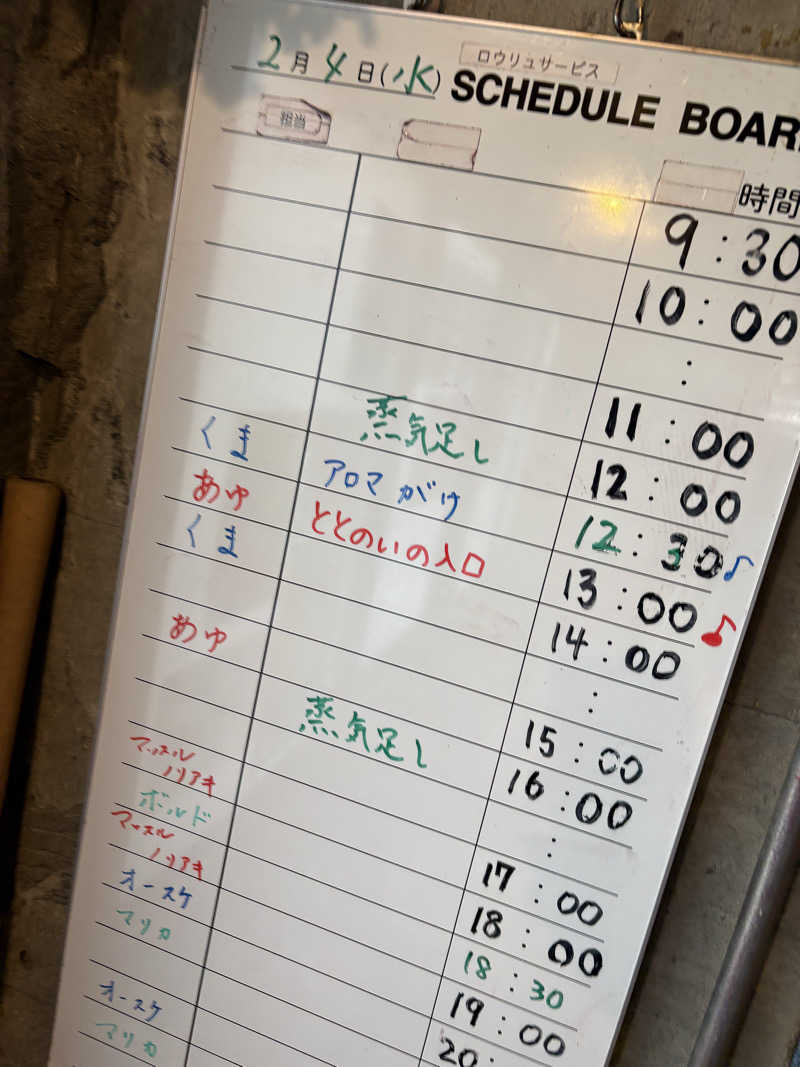 2月4日(水)
ロウリュサービス
SCHEDULE BOAR
担当
時間
9:30
10:00
:
11:00
蒸気足し 12:00
くま アロマがけ 12:30♪
あゆ ととのいの入口 13:00♪
くま 14:00
:
あゆ 15:00
蒸気足し 16:00
:
マッスル
ノリアキ 17:00
ボルド 18:00
マッスル
ノリアキ 18:30
オースケ 19:00
マリカ 20:
オースケ
マリカ